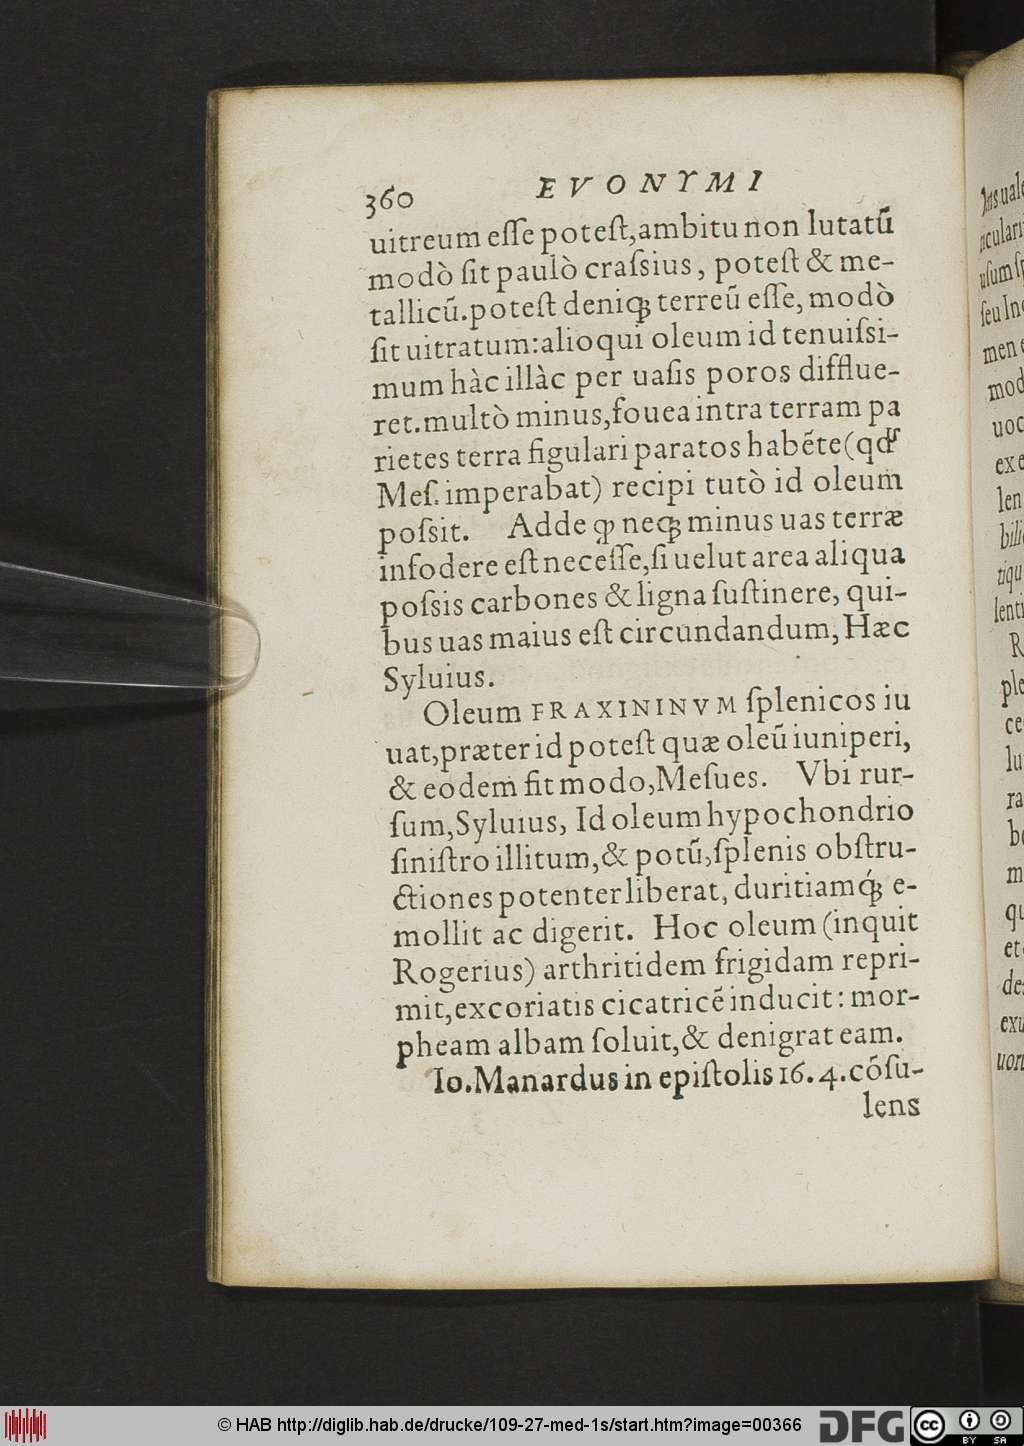 360 EVONYMI
uitreum eſſe poteſt,ambitu non lutatũ
modò ſit paulò craſsius, poteſt & me-
tallicũ.poteſt deniqꝫ terreũ eſſe, modò
ſit uitratum:alioqui oleum id tenuiſsi-
mum hàc illàc per uaſis poros difflue-
ret.multò minus,fouea intra terram pa
rietes terra figulari paratos habẽte(qđ
Meſ. imperabat) recipi tutò id oleum
poſsit. Adde ꝙ neqꝫ minus uas terræ
infodere eſt neceſſe,ſi uelut area aliqua
poſsis carbones & ligna ſuſtinere, qui-
bus uas maius eſt circundandum, Hæc
Syluius.
Oleum FRAXININVM ſplenicos iu
uat,præter id poteſt quæ oleũ iuniperi,
& eodem fit modo,Meſues. Vbi rur-
ſum,Syluius, Id oleum hypochondrio
ſiniſtro illitum,& potũ,ſplenis obſtru-
ctiones potenter liberat, duritiamq́ꝫ e-
mollit ac digerit. Hoc oleum (inquit
Rogerius) arthritidem frigidam repri-
mit,excoriatis cicatricẽ inducit: mor-
pheam albam ſoluit,& denigrat eam.
Io.Manardus in epiſtolis 16.4.cõſu-
lens
© HAB http://diglib.hab.de/drucke/109-27-med-1s/start.htm?image=00366
DFG
cc BY SA